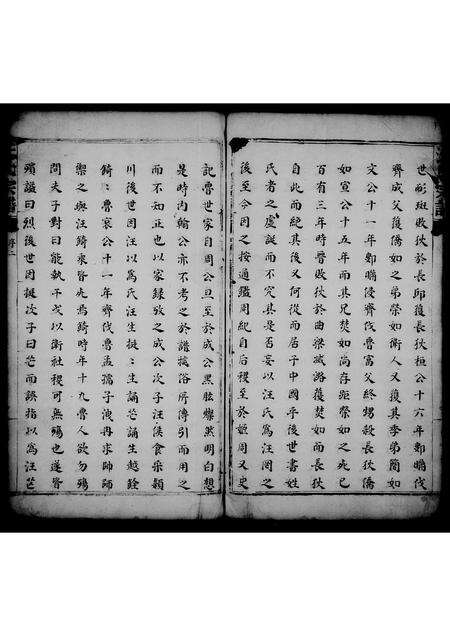 世彤班敗狄於長邱獲長狄桓公十六年鄋瞞伐
齊齊王子成父獲僑如之弟榮如衛人又獲其季弟簡如
文公十一年鄋瞞侵齊伐魯富父終甥殺長狄僑
如宣公十五年而其兄焚如尚存距榮如之死已
百有三年時晉敗狄於曲梁滅潞獲焚如而長狄
自此而絕其後又何從而居于中國乎後世書姓
氏者之虛誕而不究其是否妄以汪氏為汪罔之
後至今因之按通鑑周紀自后稷至於姬周又史
記魯世家自周公旦至於成公黑肱燦然明白想
是時内翰公亦不考之於譜據俗所傳引而用之
而不知正也以家錄攷之成公次子汪侯食采潁
川後世因汪以為氏汪生挺挺生誦芒誦生越銓
錡魯哀公十一年齊伐魯孟孺子洩冉求帥師
禦之與汪錡乘皆死焉錡時年十九魯人欲勿殤
問夫子對曰能執干戈以衛社稷可無殤也遂皆
殯謚曰烈後世因誕次子曰芒而誤指以為汪芒